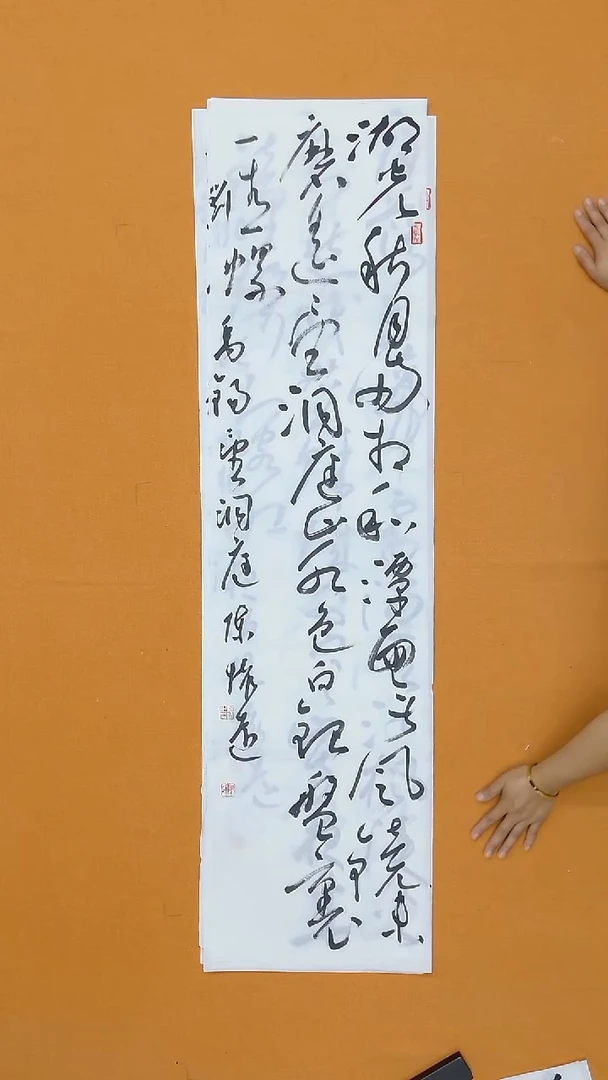 湖光秋月两相和潭面无风镜未
磨遥望洞庭山水色白银盘裏
一青螺
刘禹锡望洞庭陈